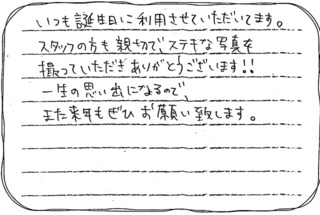 いつも誕生日に利用させていただいてます。
スタッフの方も親切で、ステキな写真を
撮っていただきありがとうございます!!
一生の思い出になるので、
また来年もぜひお願い致します。